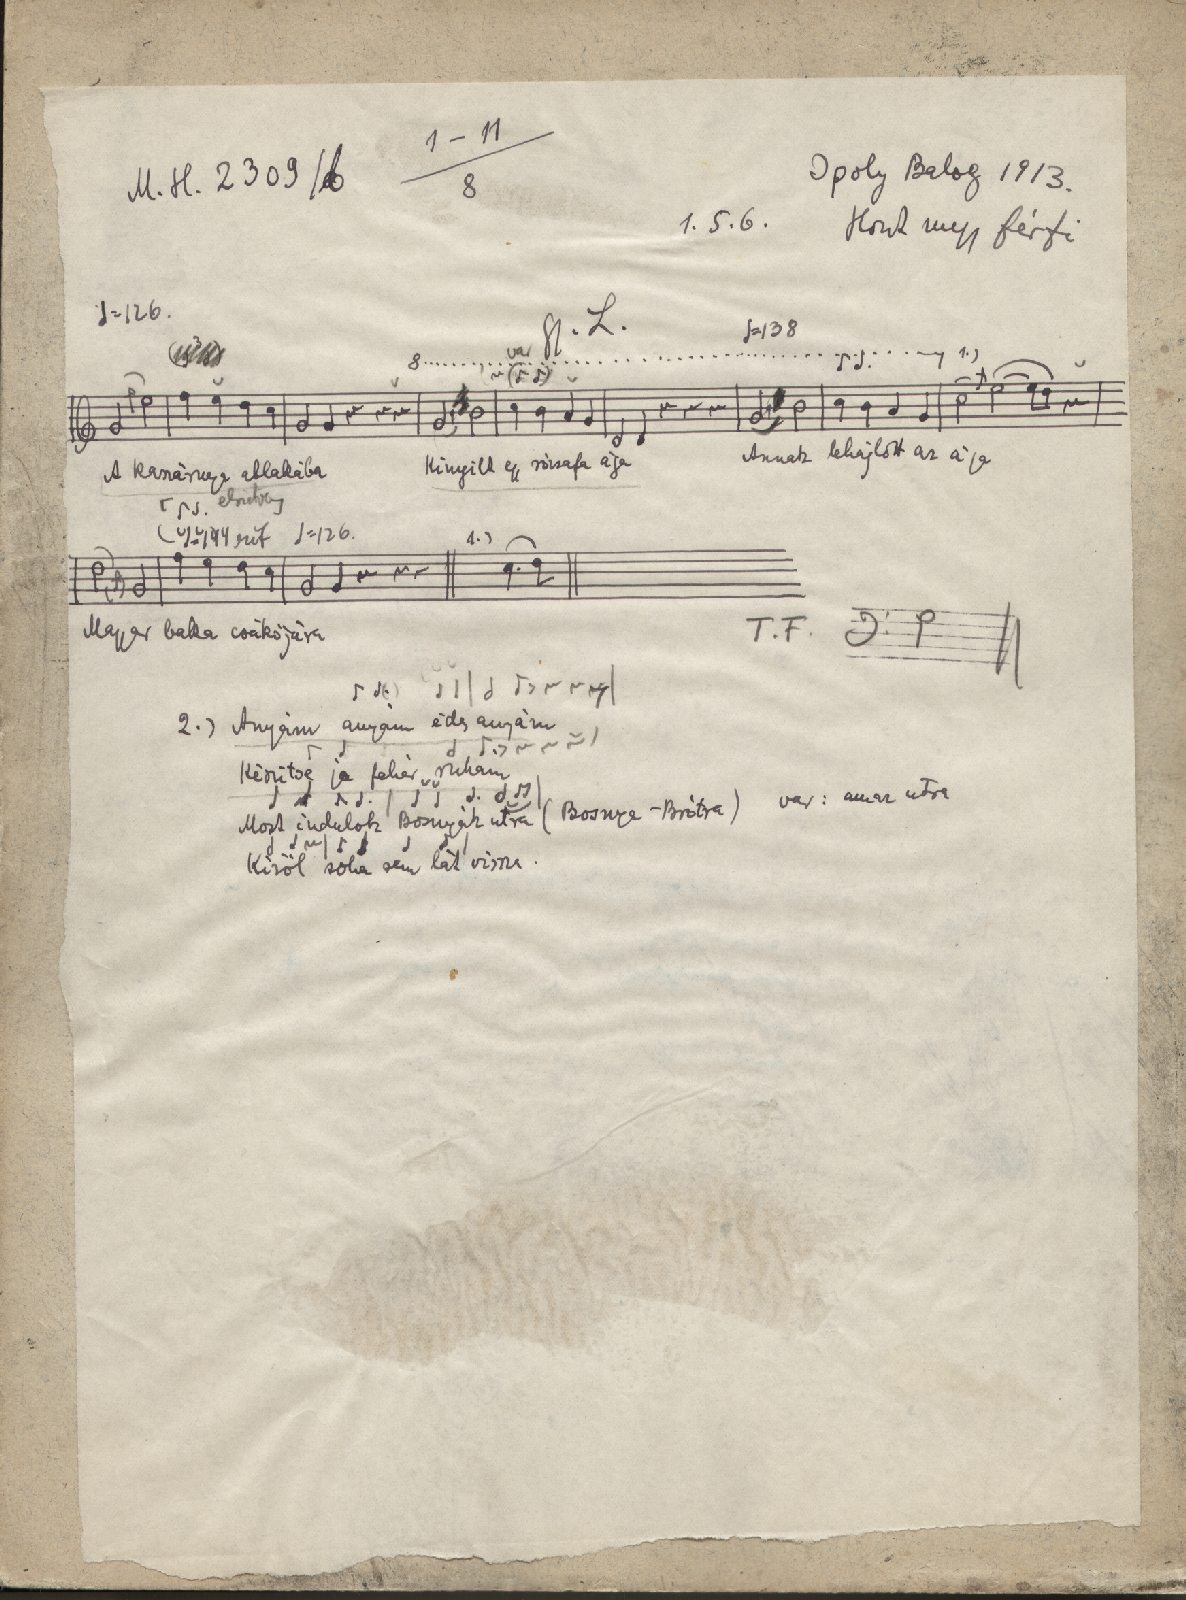 M. H. 2309/b
1 – 11
8
Ipoly Balog 1913.
1. 5. 6.
Hont megy férfi
♩=126.
gy. L.
8
var
♩=138
1.)
A kaszárnya ablakába
Kinyilt egy rózsafa ága
Annak lehajlott az ága
♩=144
♩=126.
1.)
Magyar baka csákójára
T. F.
2.) Anyám anyám édes anyám
Készitse ja fehér ruhám
Most indulok Bosnyák utra (Bosnya – Brótra) var: amaz utra
Kiről soha sem lát vissza.